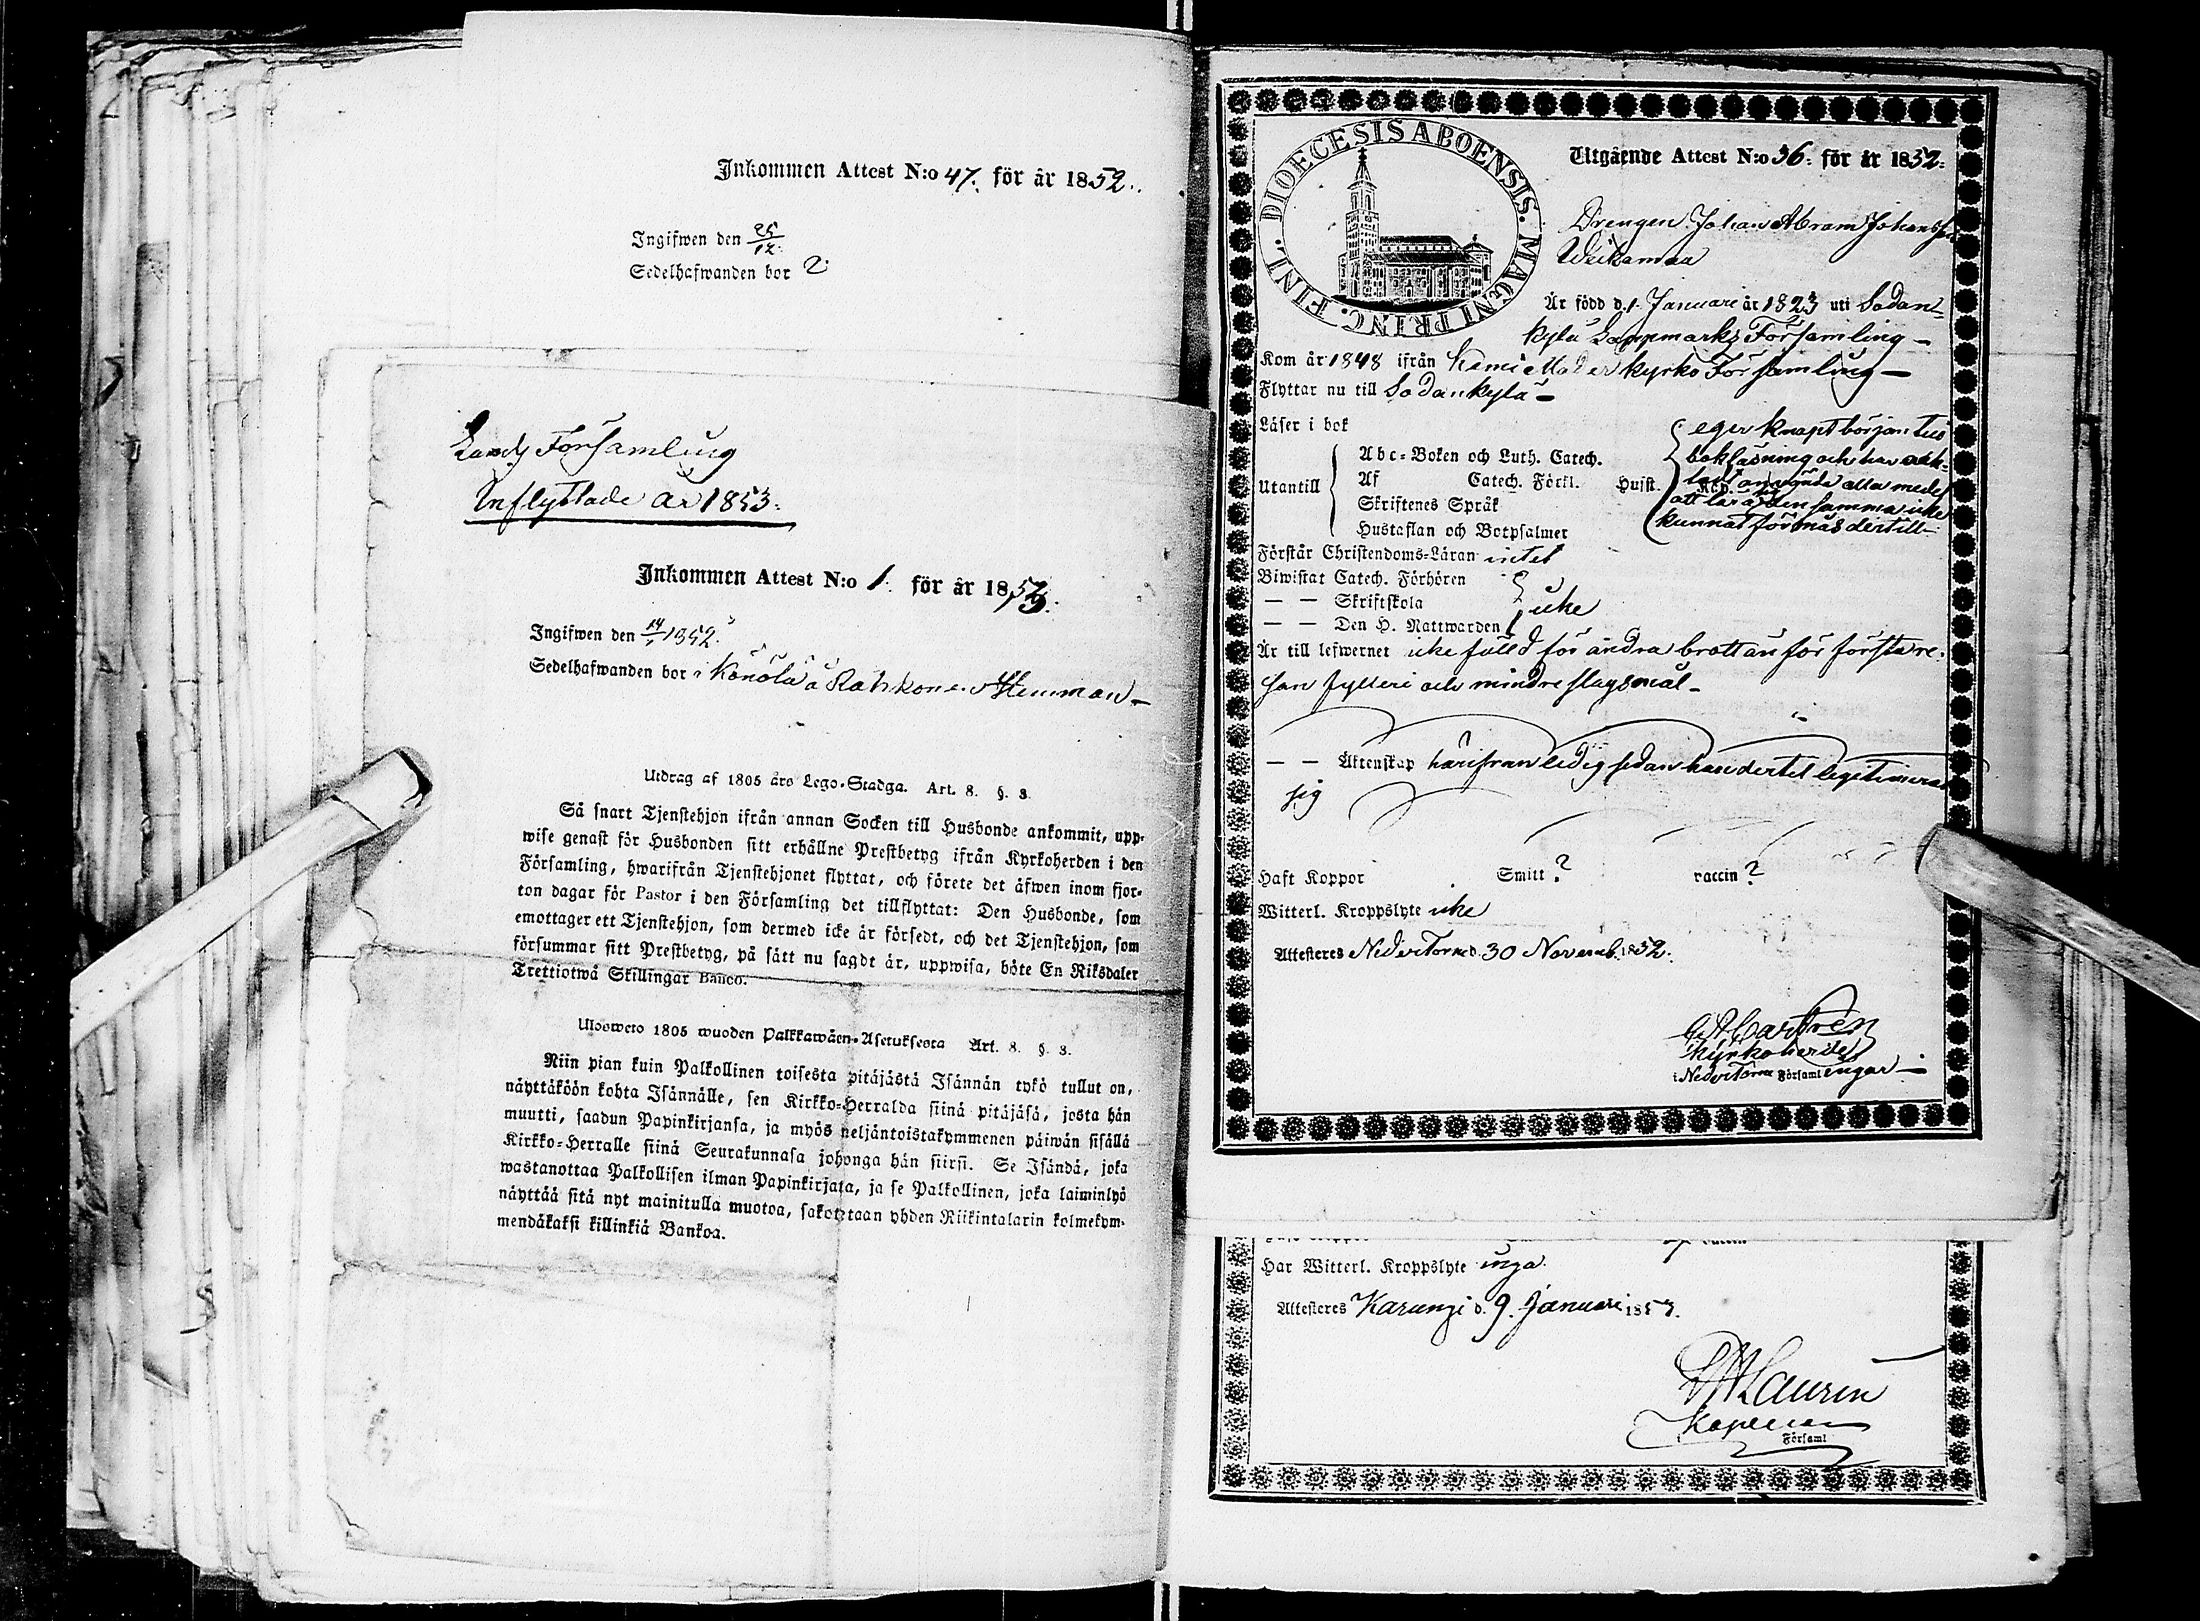 Inkommen Attest N:o 47. för år 1852.
Ingifwen den 25/12.
Sedelhafwanden bor ?
Lands Församling
Inflyttade År 1853.
Inkommen Attest N:o 1. för år 1853.
Ingifwen den 14/1 1852.
Sedelhafwanden bor i Könölä å Rahkonen Hemman
Utdrag af 1805 års Lego-Stadga. Art. 8. §. 8.
Så snart Tjenstehjon ifrån annan Socken till Husbonde ankommit, upp-
wise genast för Husbonden sitt erhållne Prestbetyg ifrån Kyrkoherden i den
Församling, hwarifrån Tjenstehjonet flyttat, och förete det äfwen inom fjor-
ton dagar för Pastor i den Församling det tillflyttat: Den Husbonde, som
emottager ett Tjenstehjon, som dermed icke är försedt, och det Tjenstehjon, som
försummar sitt Prestbetyg, på sätt nu sagdt är, uppwisa, böte En Riksdaler
Trettiotwå Skillingar Banco.
Ulosweto 1805 wuoden Palkkawäen-Asetuksesta Art. 8. §. 8.
Niin pian kuin Palkollinen toisesta pitäjästä Isännän tykö tullut on,
näyttäköön kohta Isännälle, sen Kirkko-Herralda siinä pitäjäsä, josta hän
muutti, saadun Papinkirjansa, ja myös neljäntoistakymmenen päiwän sisällä
Kirkko-Herralle siinä Seurakunnasa johonga hän siirsi. Se Isändä, joka
wastanottaa Palkollisen ilman Papinkirjata, ja se Palkollinen, joka laiminlyö
näyttää sitä nyt mainitulla muotoa, sakotetaan yhden Riikintalarin kolmekym-
mendäkaksi killinkiä Bankoa.
DIOECESIS ABOENSIS. MAGNI PRINC. FINL.
Utgående Attest N:o 36. för år 1852.
Drengen Johan Abram Johansson
Weikamaa
Är född d. 1. Januari år 1823 uti Sodan-
kylä Lappmarks Församling
Kom år 1848 ifrån Kemi Moderkyrko Församling
Flyttar nu till Sodankylä
Läser i bok eger knapt början till
Abc-Boken och Luth. Catech. bokläsning och har
Utantill Af Catech. Förkl. Husst. Kap.
Skriftenes Språk att lära den samma icke
Hustaflan och Botpsalmer kunnat förmås dertill
Förstår Christendoms-Läran intet
Biwistat Catech. Förhören
— — Skriftskola icke
— — Den H. Nattwarden
Är till lefwernet icke fälld för andra brott än för första re-
san fylleri och mindre slagsmål
— — Äktenskap härifrån ledig sedan han dertil legitimerat
sig
Haft Koppor Smitt ? vaccin ?
Witterl. Kroppslyte icke
Attesteres Neder Torneå d. 30 Novemb. 1852.
Castrén
Kyrkoherde
i Neder Torneå Församlingar
Har Witterl. Kroppslyte inga.
Attesteres Karungi d. 9. Januari 1853.
Laurin
Kapellan
Församl